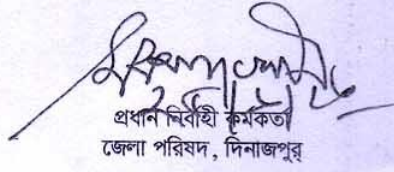 প্রধান নির্বাহী কর্মকর্তা
জেলা পরিষদ, দিনাজপুর